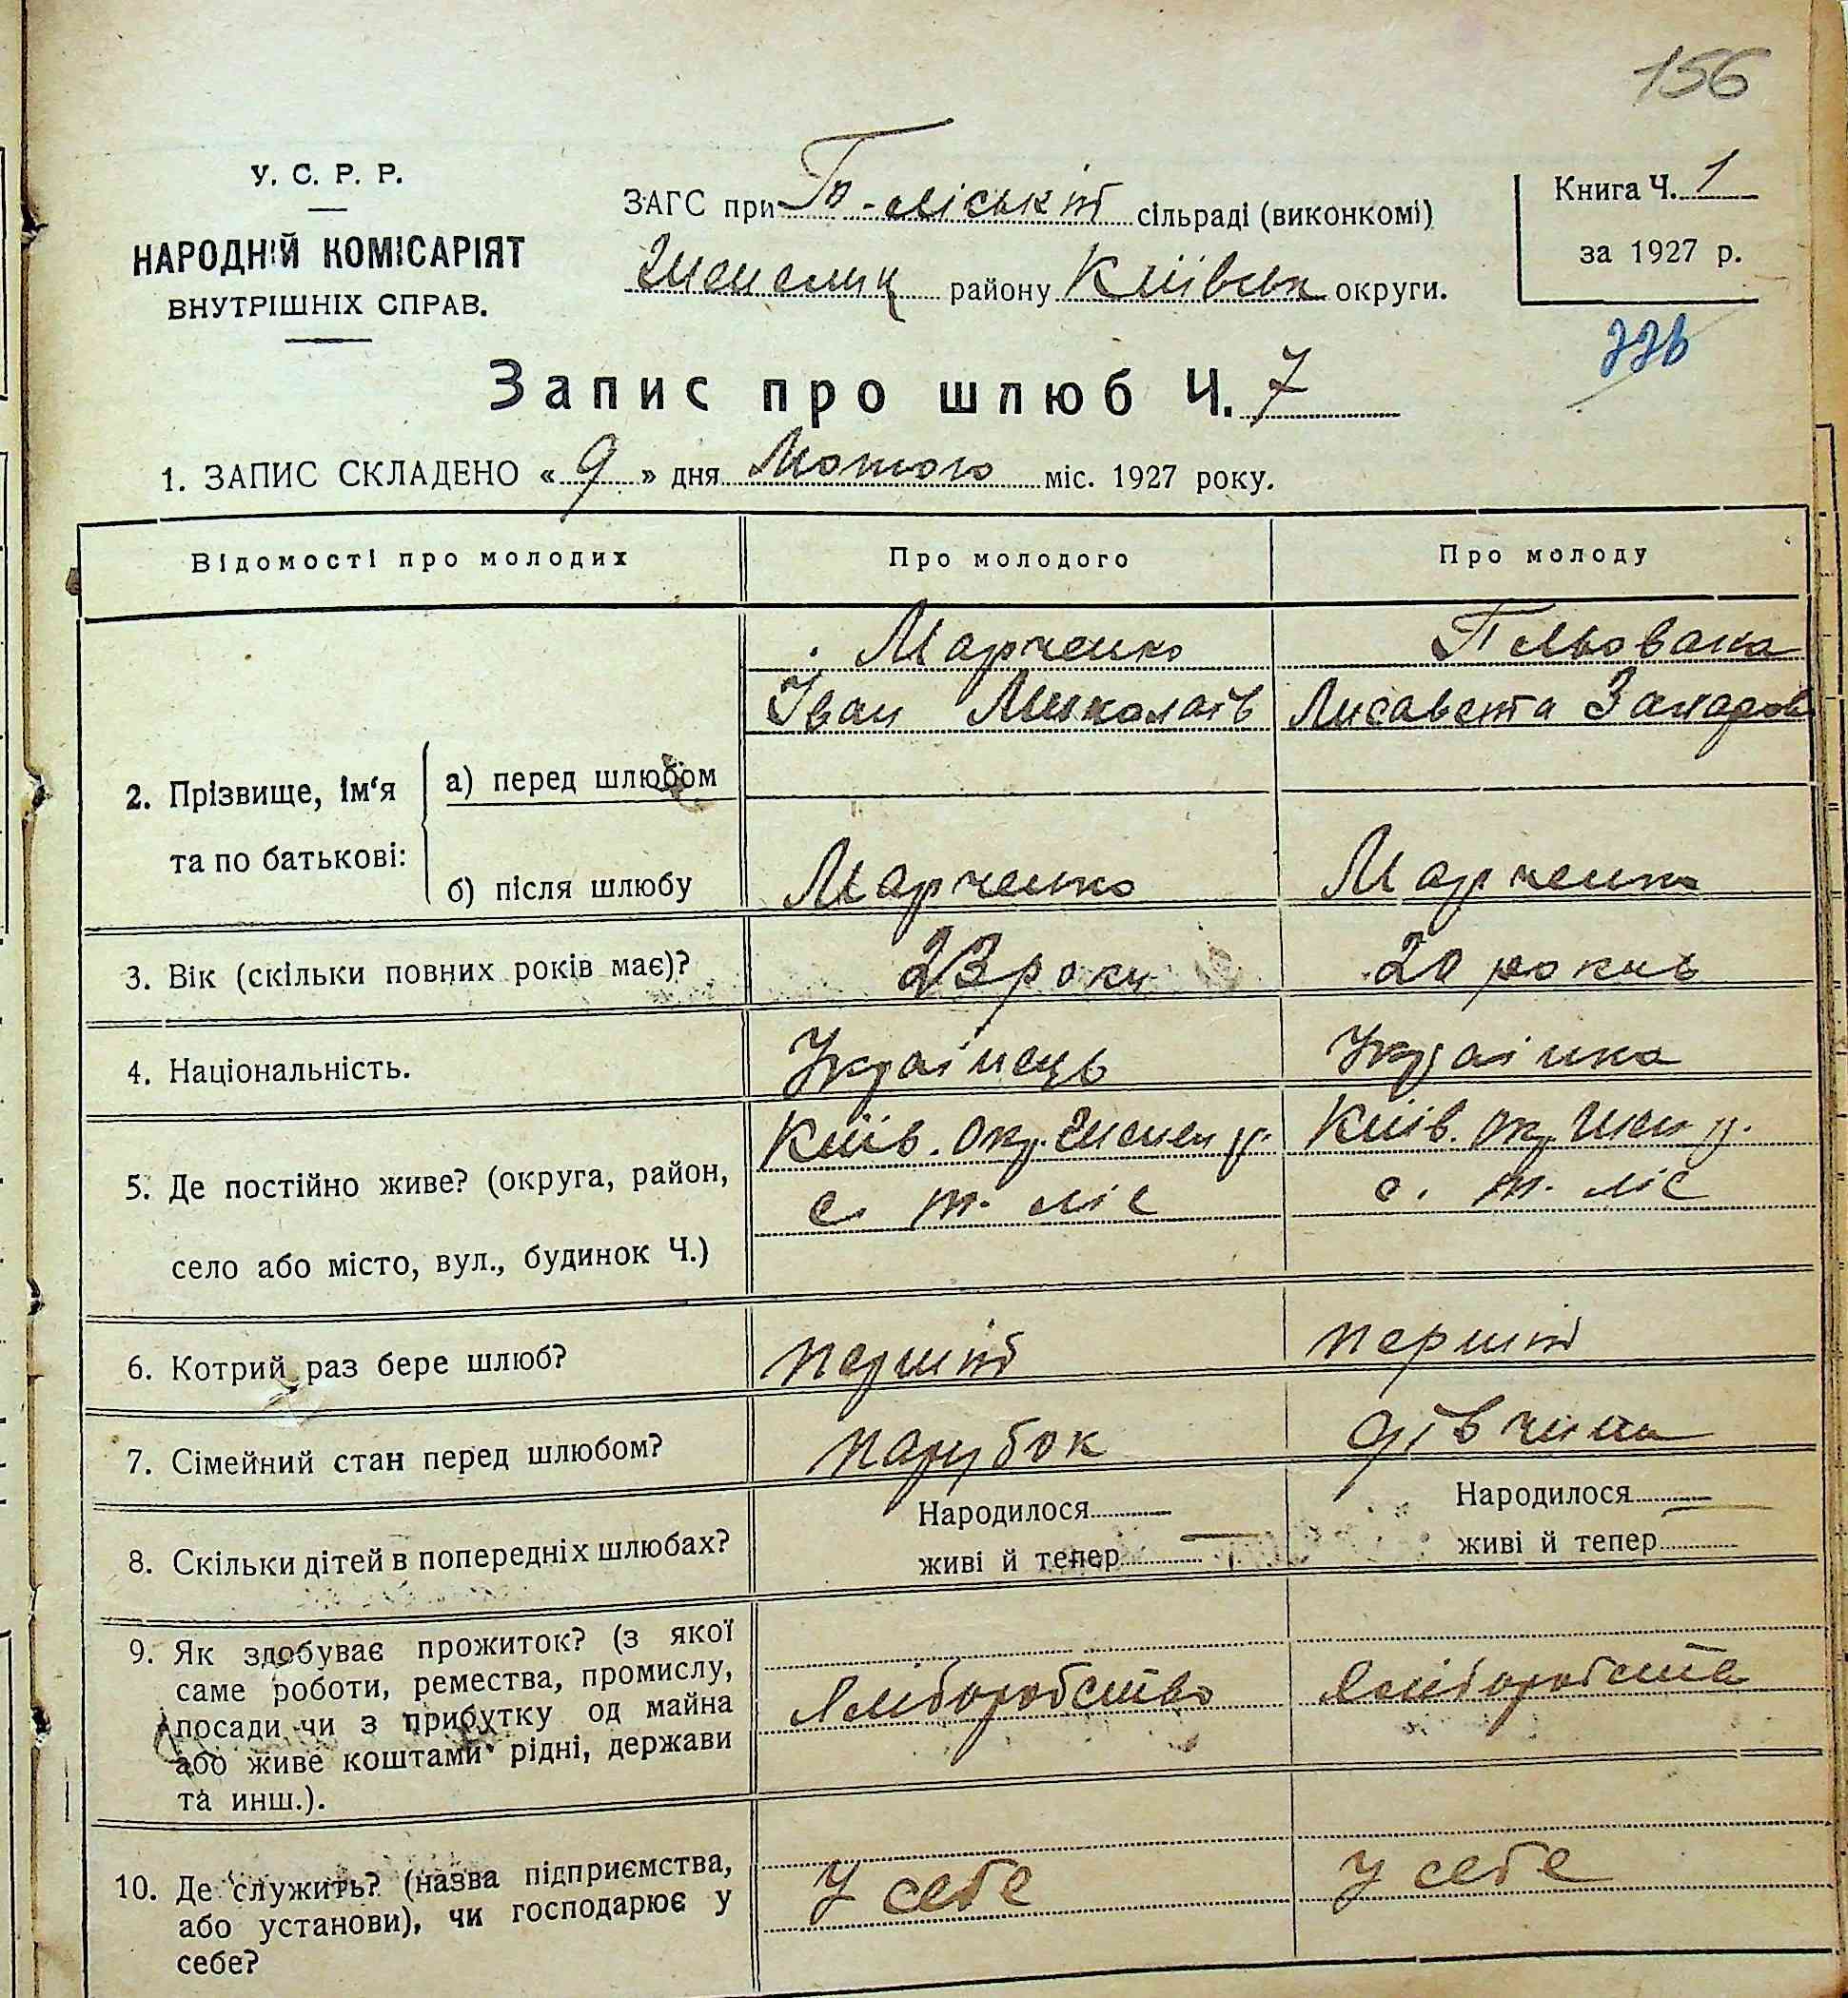 156
У. С. Р. Р.
НАРОДНІЙ КОМІСАРІЯТ
ВНУТРІШНІХ СПРАВ.
ЗАГС при Т-лісській сільраді (виконкомі)
району Київськ округи.
Книга Ч. 1
за 1927 р.
Запис про шлюб Ч. 7
1. ЗАПИС СКЛАДЕНО « 9 » дня Лютого міс. 1927 року.
Відомості про молодих Про молодого Про молоду
2. Прізвище, ім'я та по батькові:
а) перед шлюбом
Марченко
Іван Миколаїв
Лисавета Захаров
б) після шлюбу Марченко Марченко
3. Вік (скільки повних років має)? 23 роки 20 років
4. Національність. Українець Українка
5. Де постійно живе? (округа, район,
село або місто, вул., будинок Ч.)
Київ. окр. Шепел р.
с т. ліс
Київ. окр. Шеп р.
с. т. ліс
6. Котрий раз бере шлюб? перший перший
7. Сімейний стан перед шлюбом? парубок дівчина
8. Скільки дітей в попередніх шлюбах?
Народилося
живі й тепер
Народилося
живі й тепер
9. Як здобуває прожиток? (з якої
саме роботи, ремества, промислу,
посади чи з прибутку од майна
або живе коштами рідні, держави
та инш.).
хліборобство хліборобств
10. Де служить? (назва підприємства,
або установи), чи господарює у
себе?
у себе у себе